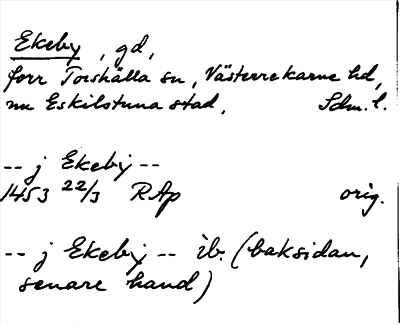 Ekeby, gd,
förr Torshälla sn, Västerrekarne hd,
nu Eskilstuna stad, Sdm. l.
-- j Ekeby --
1453 22/3 RAp orig.
-- j Ekeby -- ib. (baksidan,
senare hand)